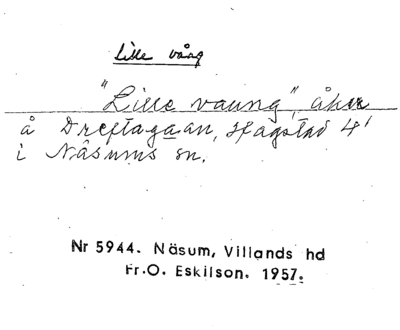 Lille vång
"Lille vaung", åker
å Dreftagaan, Hagstad 4¹
i Näsums sn.
Nr 5944. Näsum, Villands hd
Fr.O. Eskilson. 1957.